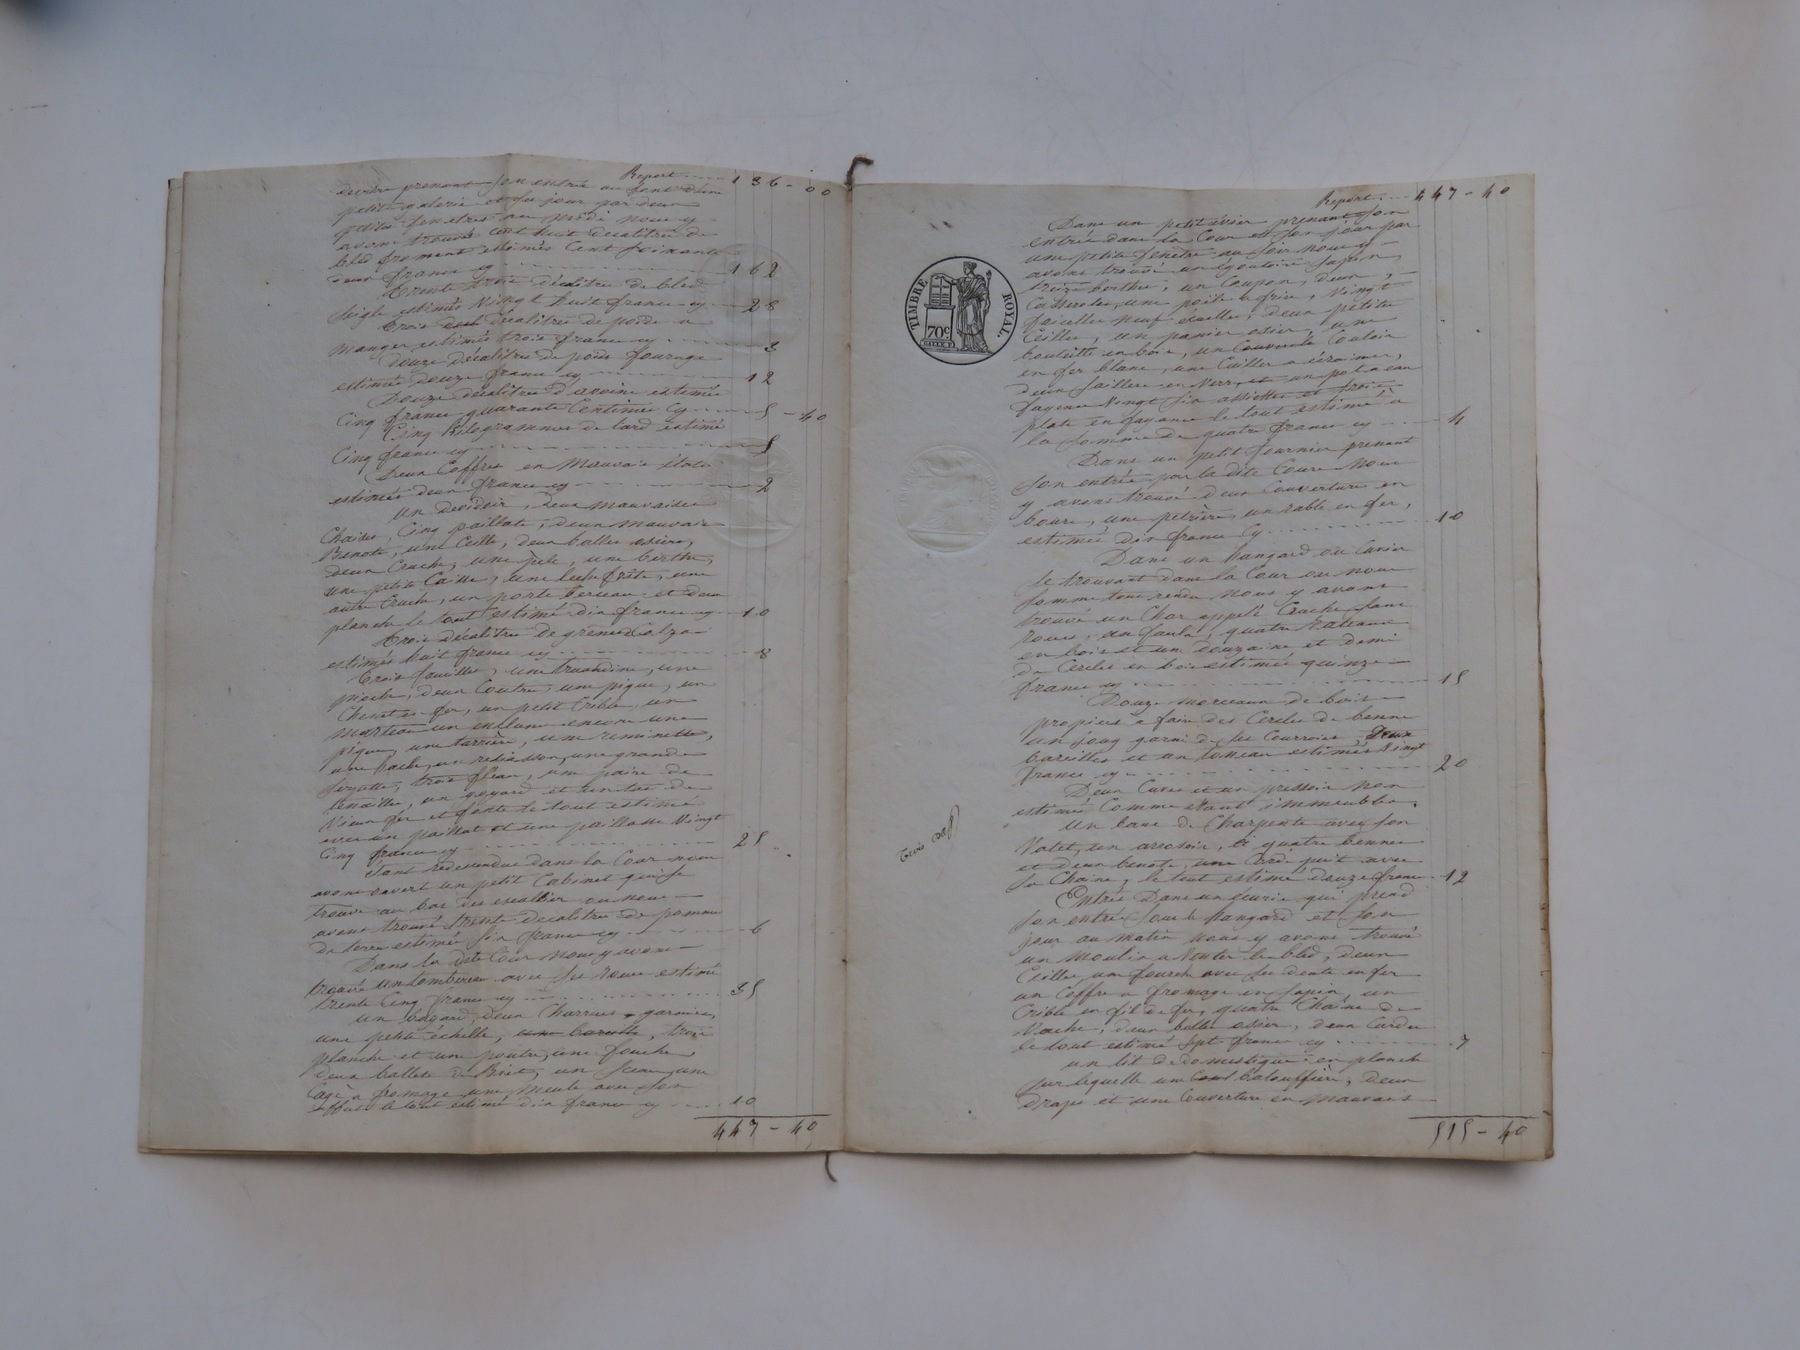 Report ..... 136 - 00
derrière prenant son entrée au fond d'une
petite galerie et son jour par deux
petites fenêtres au midi nous y
avons trouvé cent huit décalitres de
bled froment estimés cent soixante
deux francs cy ..... 162
Trente trois décalitres de bled
seigle estimés Vingt huit francs cy ..... 28
Trois décalitres de poids a
manger estimés trois francs cy ..... 3
Douze décalitres de poids fourrage
estimés douze francs cy ..... 12
Douze décalitres d'avoine estimés
Cinq francs quarante Centimes Cy ..... 5 - 40
Cinq Kilogrammes de lard estimé
Cinq francs cy ..... 5
Deux Coffres en Mauvais État
estimés deux francs cy ..... 2
un devidoir, deux mauvaises
Chaises, Cinq paillats, deux mauvais
Benots, une Ceille, deux balles osière,
deux Cruches, une pèle, une berthe,
une petite Caisse, une leche frite, une
autre Cruche, un porte berceau et deux
planches le tout estimé dix francs cy ..... 10
Trois décalitres de graines Colza
estimés huit francs cy ..... 8
Trois faucilles, une truandine, une
pioche, deux Coutres, une pique, un
Chenet en fer, un petit Crible, un
marteau un enclume encore une
pique, une tarrière, une reminette,
une hache, un rediasson, une grande
fléaux, une paire de
tenailles, un goyard et un tas de
Vieux fer et fonte le tout estimé
avec un paillat et une paillasse Vingt
Cinq francs cy ..... 25
Étant redescendus dans la Cour nous
avons ouvert un petit Cabinet qui se
trouve au bas des escalier ou nous
avons trouvé trente decalitres de pomme
de terre estimés six francs cy ..... 6
Dans la dite Cour nous y avons
trouvé un tombereau avec ses roues estimé
trente Cinq francs cy ..... 35
un bigard, deux Charrues garnies,
une petite échelle, une baratte, trois
planches et une poutre, une fourche,
deux ballets de Biot, un sceau, une
Cage a fromage une Meule avec son
affut le tout estimé dix francs cy ..... 10
447 - 40
Report .... 447 - 40
TIMBRE ROYAL.
70c
Dans un petit évier prenant son
entrée dans la Cour et son jour par
une petite fenêtre au soir nous y
avons trouvé un égoutoir sapin,
treize berthes, un Coupon, deux
Casseroles, une poile a frire, Vingt
faicelles neuf écuelles, deux petites
Ceilles, un panier osier, une
bouteille en bois, un Couvercle Couloir
en fer blanc, une Cuiller a écraimer,
deux Sallières en Verre, et un pot a eau
fayence Vingt six assiettes et trois
plats en fayance le tout estimé a
la somme de quatre francs cy ..... 4
Dans un petit fournier prenant
son entrée par la dite Coure nous
y avons trouvé deux Couvertures en
boure, une petrière, un rable en fer,
estimés dix francs Cy ..... 10
Dans un hangard ou Cuvier
se trouvant dans la Cour ou nous
somme tous rendu nous y avons
trouvé un Char appelé Crache sans
roues, un faulx, quatre Rateaux
en bois et une douzaine et demi
de Cercles en bois estimés quinze
francs cy ..... 15
Douze morceaux de bois
propices a faire des Cercles de benne
un joug garni de ses Courroies, Deux
bareilles et un tonneau estimés Vingt
francs cy ..... 20
Deux Cuves et un pressoir non
estimés Comme étant immeubles.
Un banc de Charpente avec son
Valet, un arrosoir, quatre bennes
et deux benots, une Corde puit avec
sa Chaine, le tout estimé douze francs .. 12
Entrés Dans un écurie qui prend
son entré sous le hangard et son
jour au matin nous y avons trouvé
un Moulin a Venter le bled, deux
Ceilles une fourche avec ses dents en fer
un Coffre a fromage en sapin un
Crible en fil de fer, quatre Chaine de
Vache, deux balles osier, deux Cardes
le tout estimé sept francs cy ..... 7
un lit de domestique en planche
sur lequelle une baloussière, deux
draps et une Couverture en mauvais
515 - 40